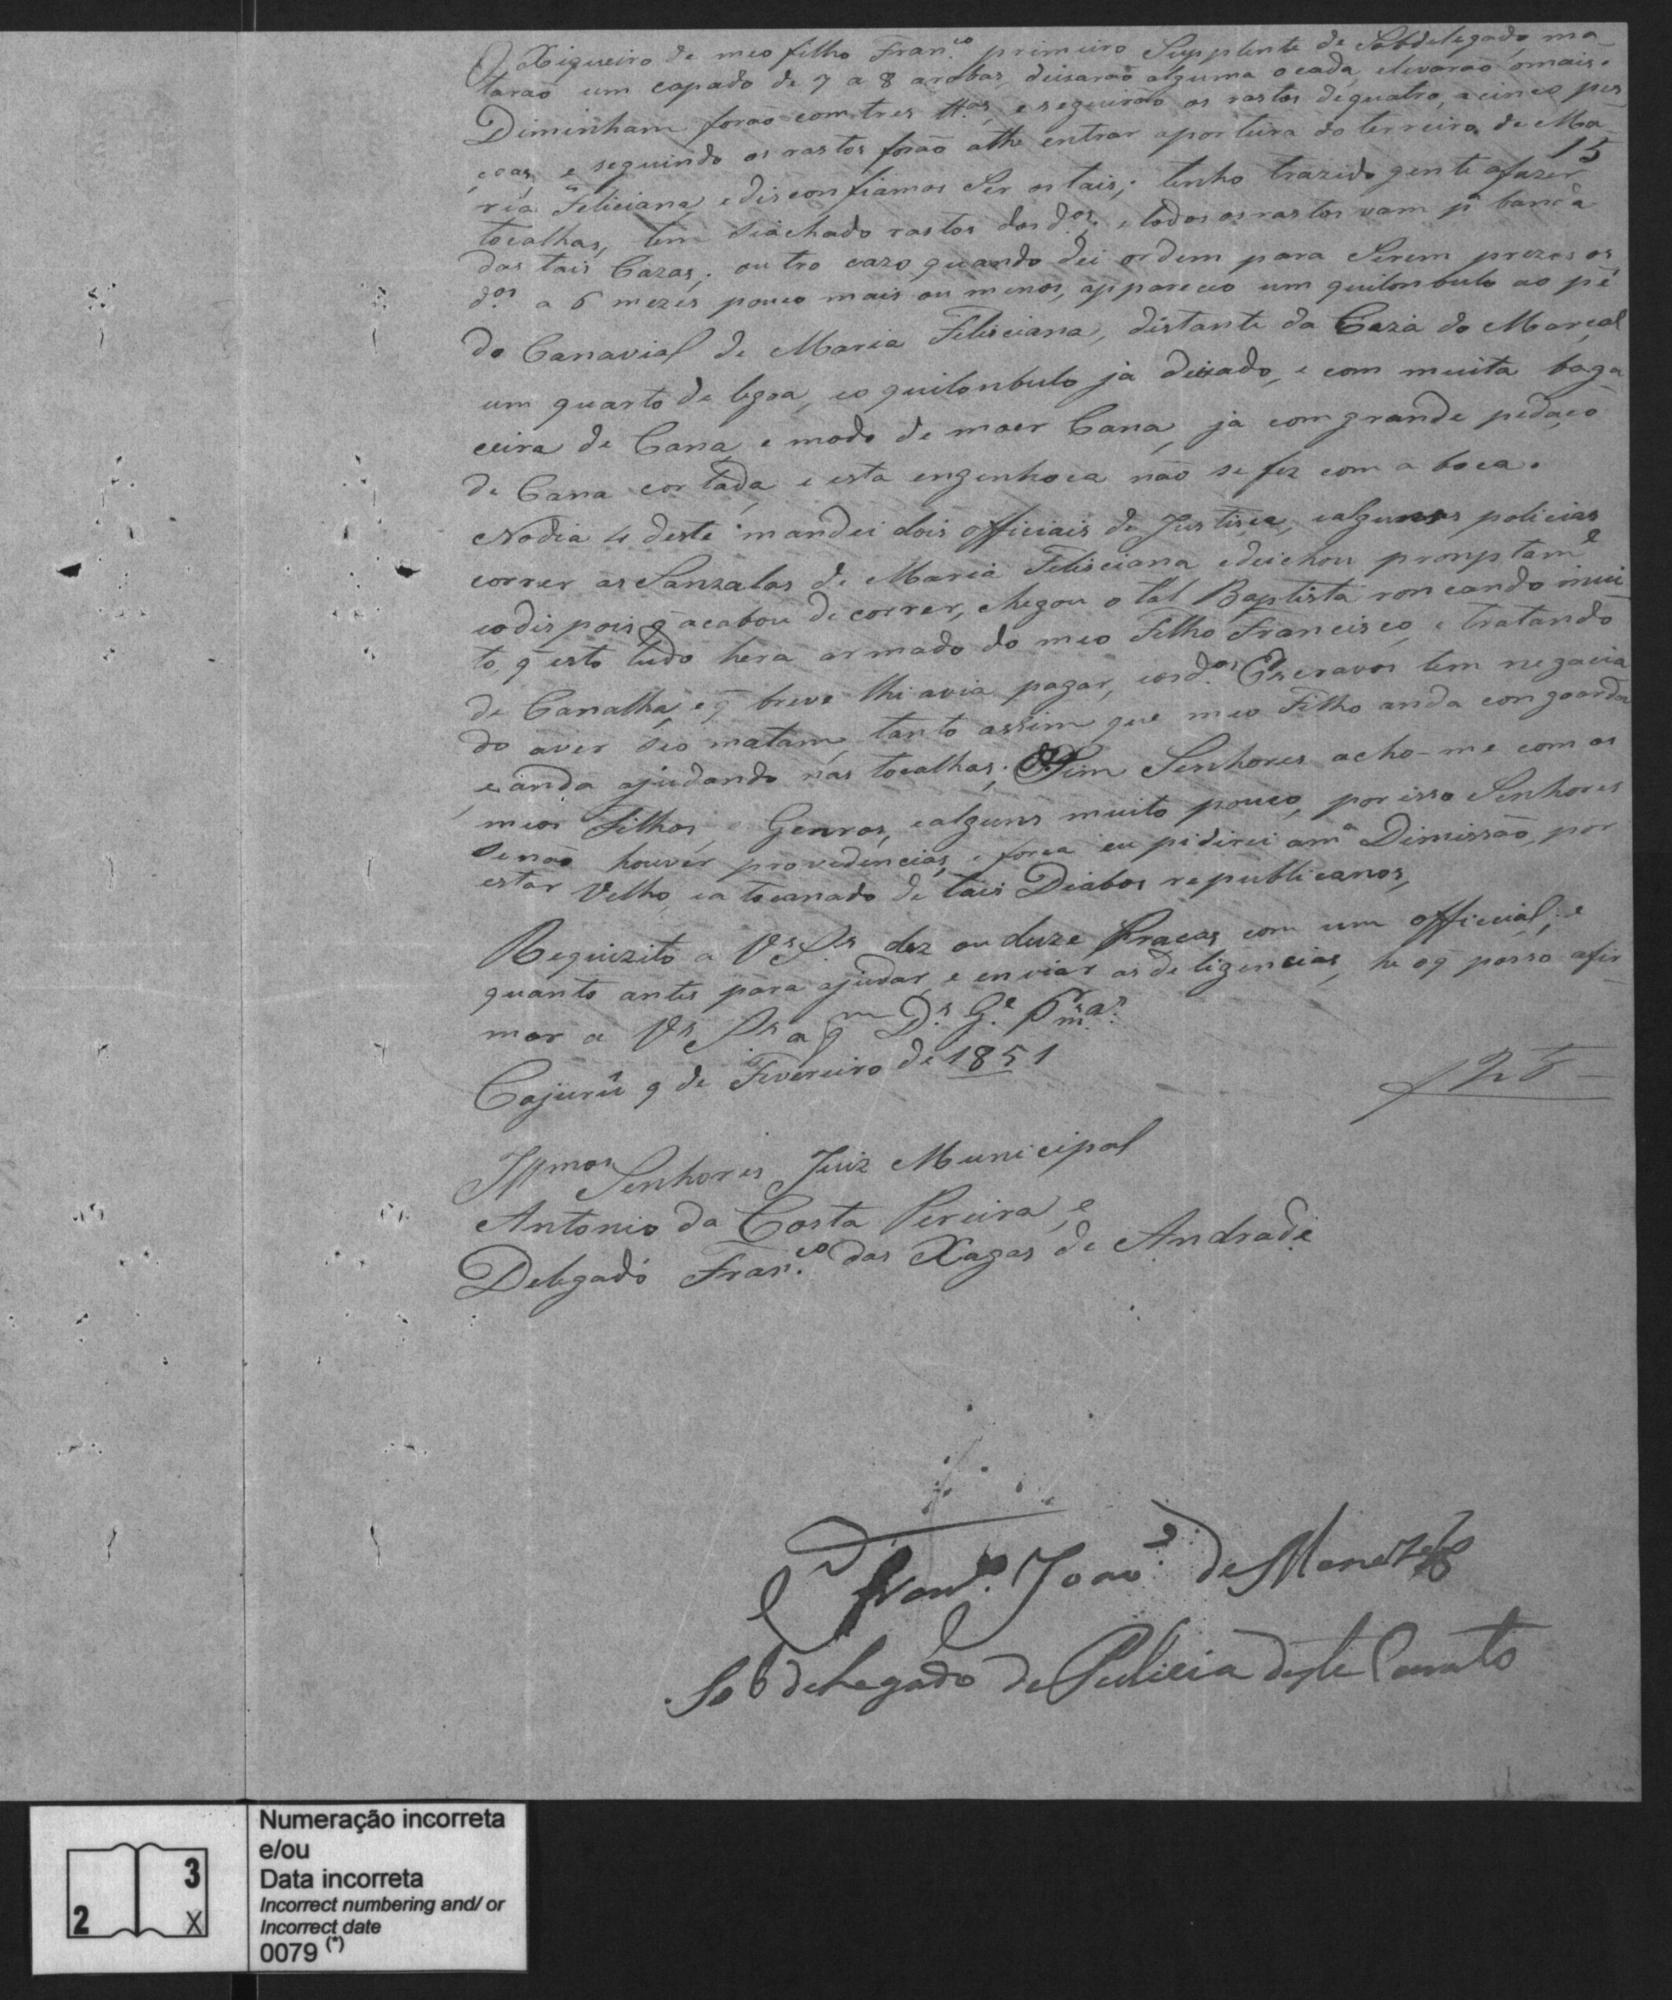 O Xiqueiro de meo filho Fran.co primeiro Supplente de Sobdelegado, ma
tarão um capado de 7 a 8 arobas, deixarão alguma ocada, elevarão omais.
Diminham forão com tres tt.as, e seguirão os rastos de quatro, a cinco pes
çoas, e seguindo os rastos forão athe entrar aporteira do terreiro de Ma
15
ria Feliciana, e disconfiamos Ser os tais; tenho trazido gente afazer
tocalhas, tem Seachado rastos dos d.os; e todos os rastos vam p.a banda
das tais Cazas; outro cazo, quando dei ordem para Serem prezos os
d.os a 6 mezes pouco mais ou menos, appareceo um quilonbulo ao pé
do Canavial de Maria Felisciana, distante da Caza do Marçal
um quarto de legoa, eo quilonbulo já deixado, e com muita baga
ceira de Cana, e modo de moer Cana, ja com grande pedaço
de Cana cortada, e esta engenhoca não se fez com a boca.
Nodia 4 deste mandei dois officiais de Justiça, ealgumas policias
correr as Sanzalas de Maria Felisciana edeichou promptam.e
eodispois q̃ acabou de correr, chegou o tal Baptista roncando mui
to, q̃ esto tudo hera armado do meo Filho Francisco, e tratando
de Canalha, e q̃ breve lhi avia pagar, eosd.os Escravos tem negacia
do aver Seo matam, tanto assim que meo Filho anda con goarda
e anda ajudando nas tocalhas; Sim Senhores acho-me com os
meos Filhos, e Genros, ealguns muito pouco, por isso Senhores
Senão houver providencias, e forca eu pidirei am.a Dimissão, por
estar Velho, ea tocanado de tais Diabos republicanos,
Requizito a V.s S.as dez ou duze Pracas com um official, e
quanto antes para ajudar, e enviar as deligencias, he oq̃ posso afir
mar a V.s S.as a q.m D.s G.e p.r m.s a.s
Cajurû 9 de Fevereiro de 1851
125
Ill.mos Senhores Juiz Municipal
Antonio da Costa Pereira, e
Delegado Fran.co das Xagas de Andrade
Fran.co Joaq.m de Menezes
Sobdelegado de Pulicia deste Curato
Numeração incorreta
e/ou
Data incorreta
Incorrect numbering and/ or
Incorrect date
0079 (*)
2 3 X